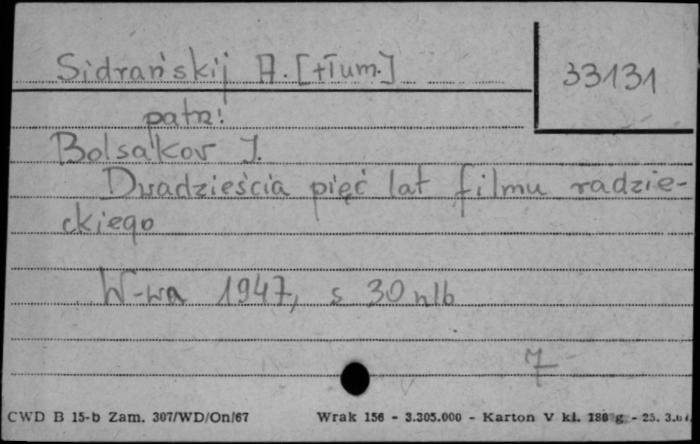 Sidrańskij A. [tłum.]
33131
patrz!
Bolsakov J.
Dwadzieścia pięć lat filmu radzie-
ckiego
W-wa 1947, s 30 nlb
7
CWD B 15-b Zam. 307/WD/On/67 Wrak 156 - 3.305.000 - Karton V kl. 180 g. - 25. 3.67